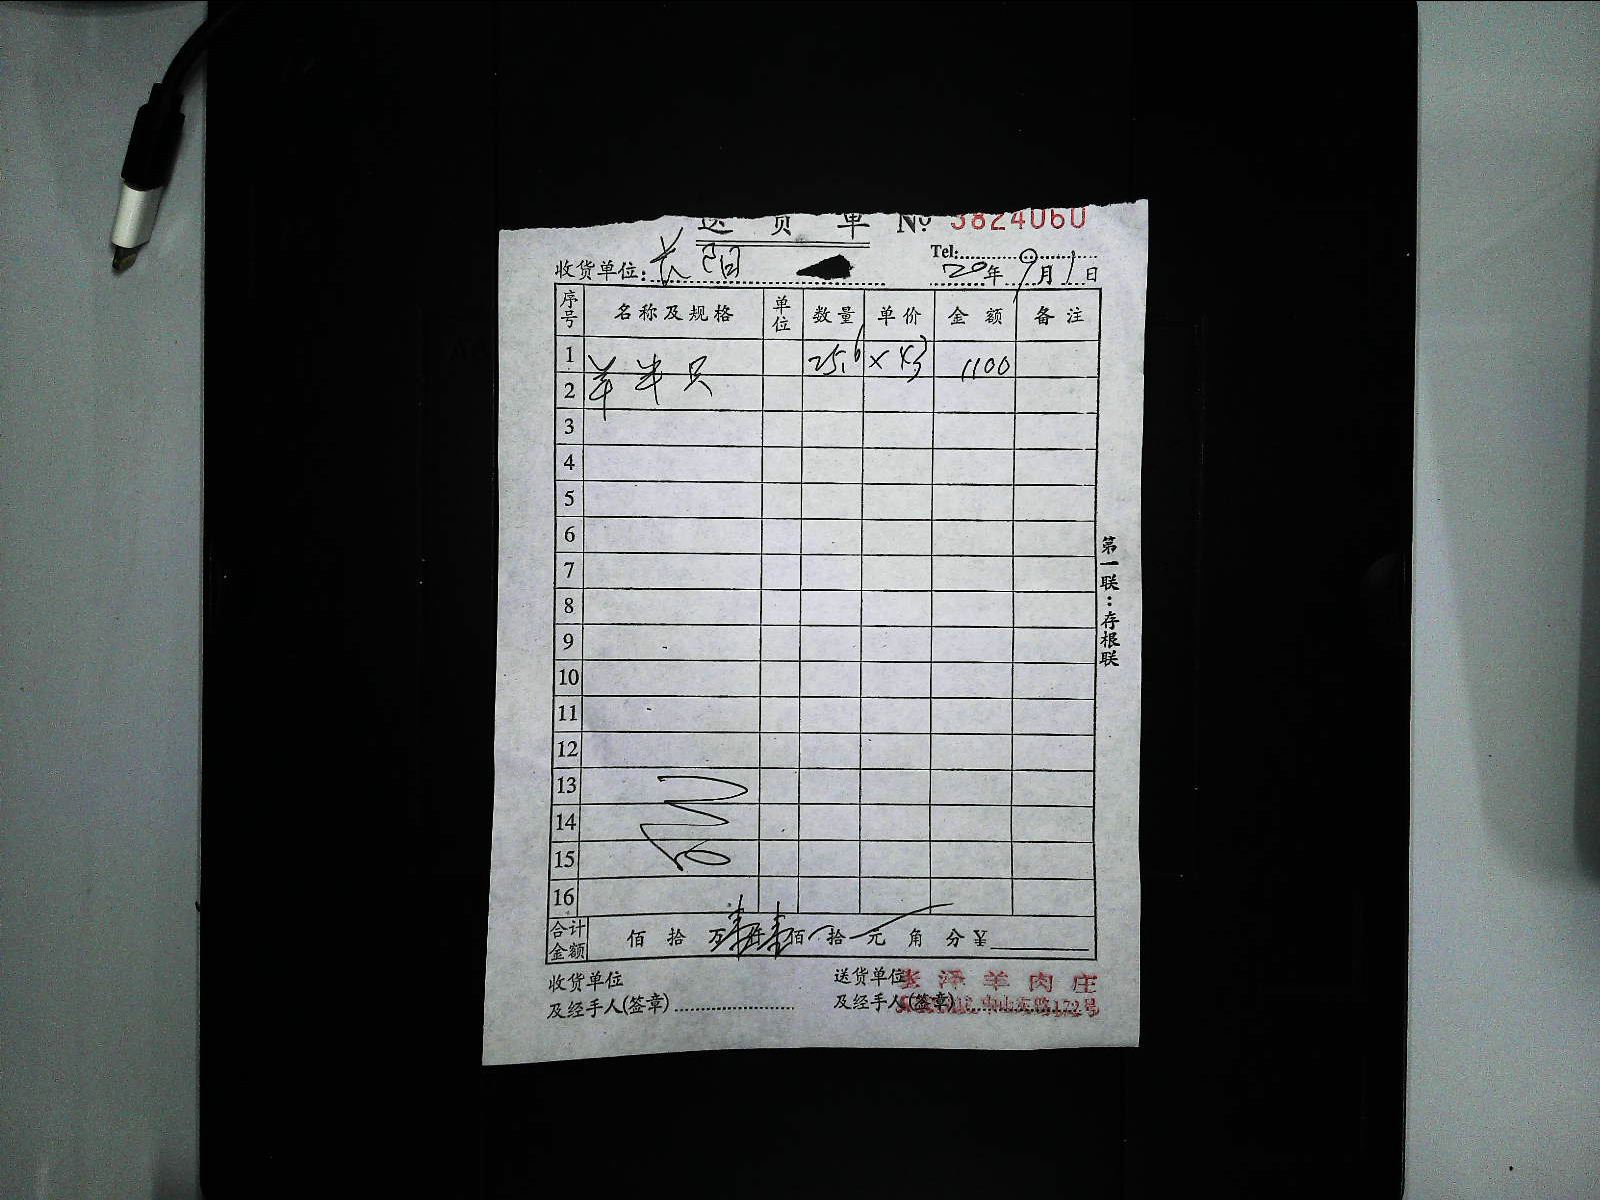 送货单 № 3824060
Tel:
收货单位: 长阳 20年9月1日
序号 名称及规格 单位 数量 单价 金额 备注
1 羊半只 25.6 × 43 1100
2
3
4
5
6
7
8
9
10
11
12
13
14
15
16
合计金额 佰 拾 万 壹仟 壹佰 拾 元 角 分 ¥
收货单位 送货单位
及经手人(签章) 及经手人(签章)
泽羊肉庄
中山东路172号
第一联:存根联